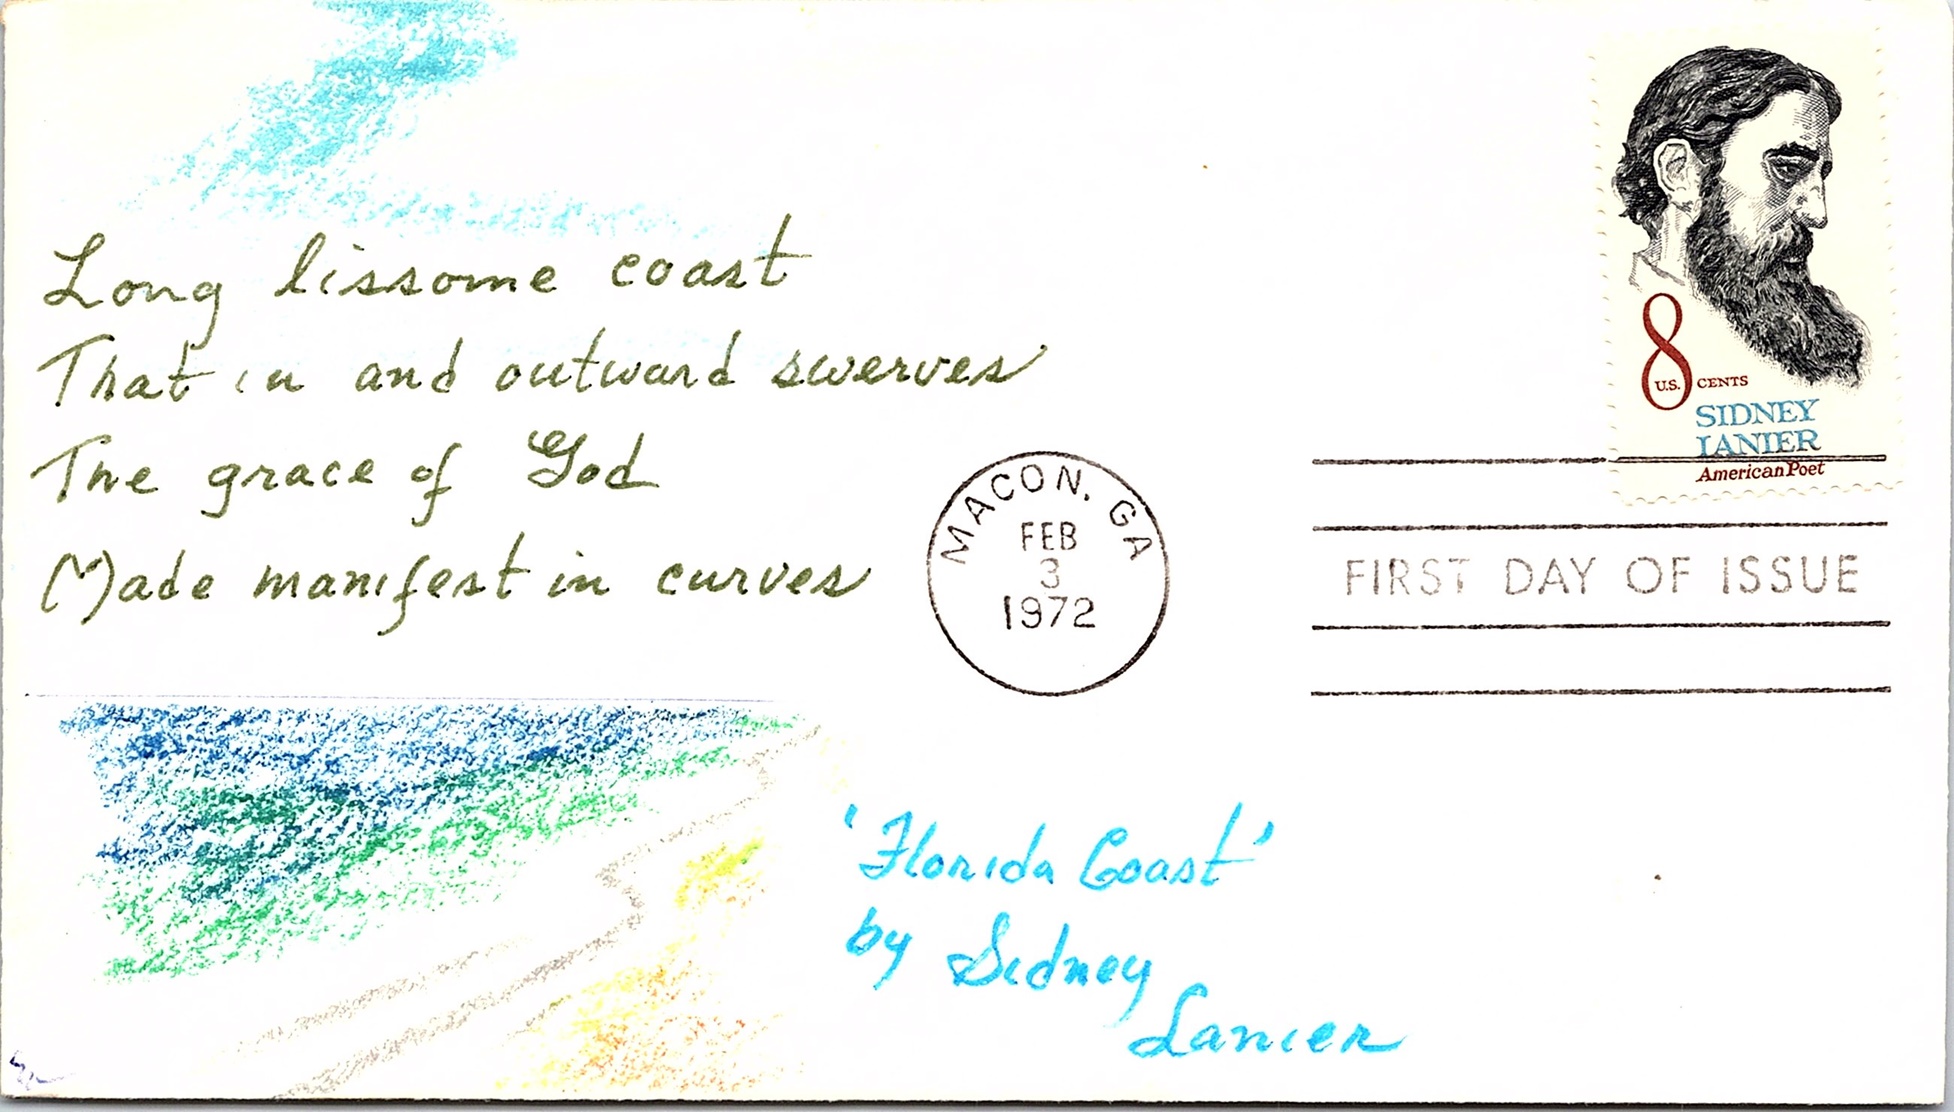 Long lissome coast
That in and outward swerves
The grace of God
Made manifest in curves
8
U.S. CENTS
SIDNEY
LANIER
American Poet
MACON, GA
FEB
3
1972
FIRST DAY OF ISSUE
'Florida Coast'
by Sidney
Lanier